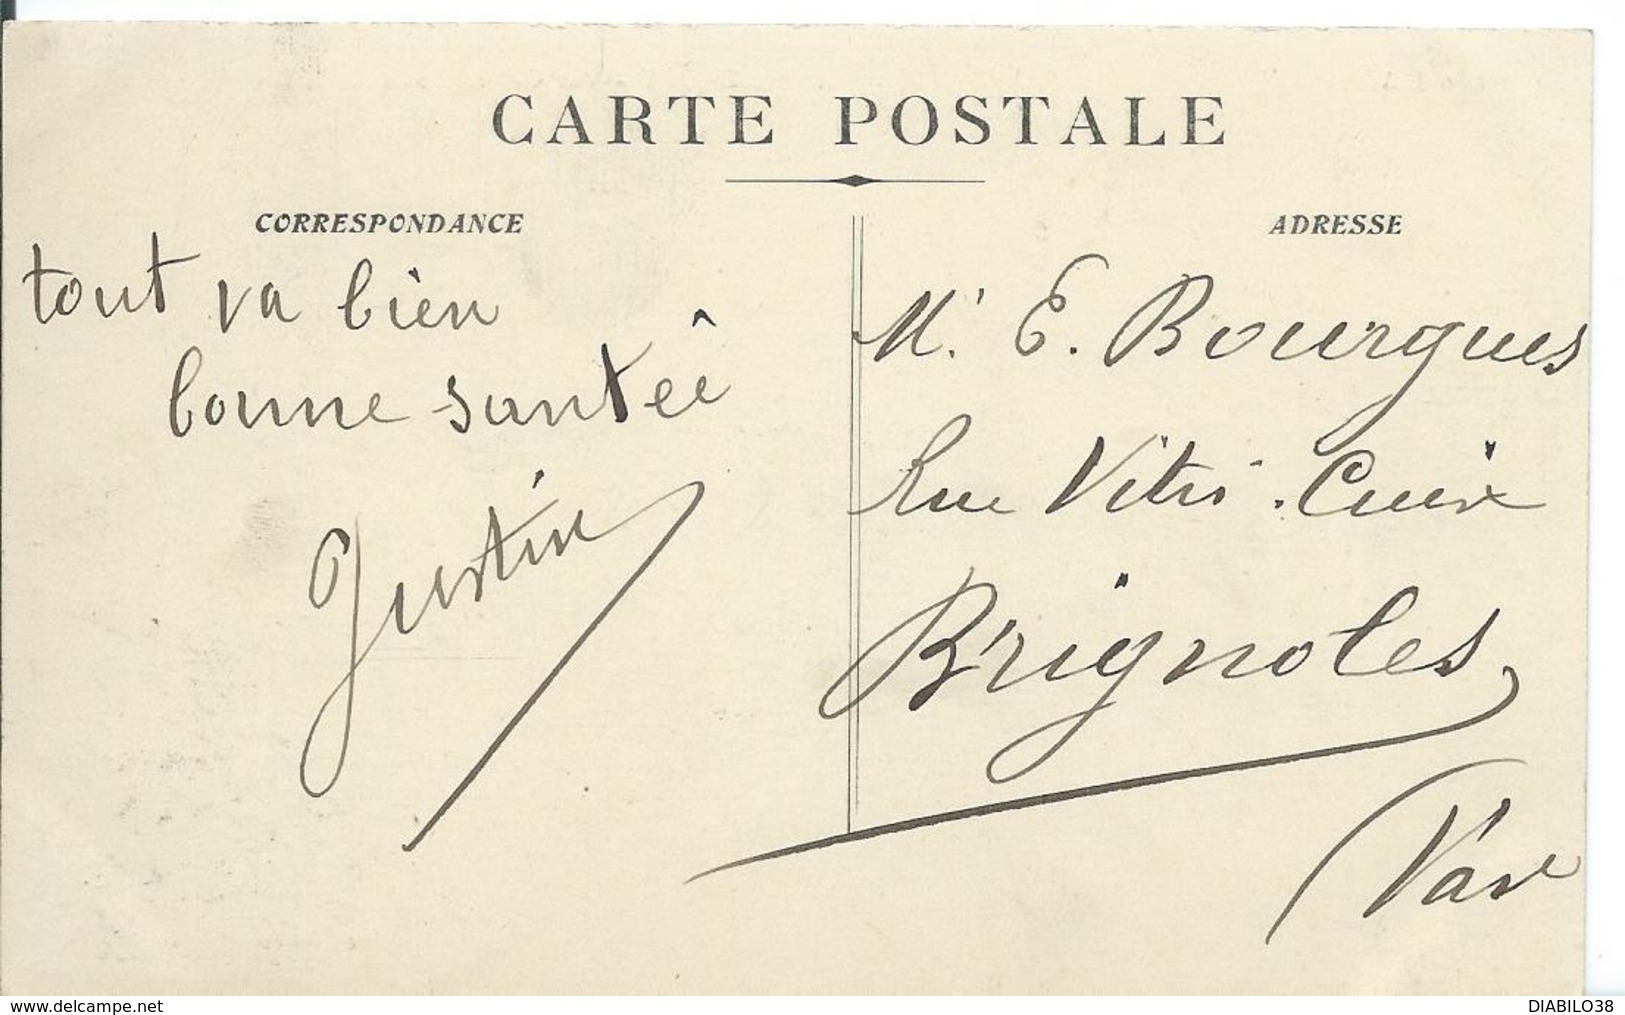 CARTE POSTALE
CORRESPONDANCE
tout va bien
bonne santée
Justin
ADRESSE
Mr. E. Bourgues
Rue Vitri-Cuire
Brignoles
Var
www.delcampe.net
DIABILO38